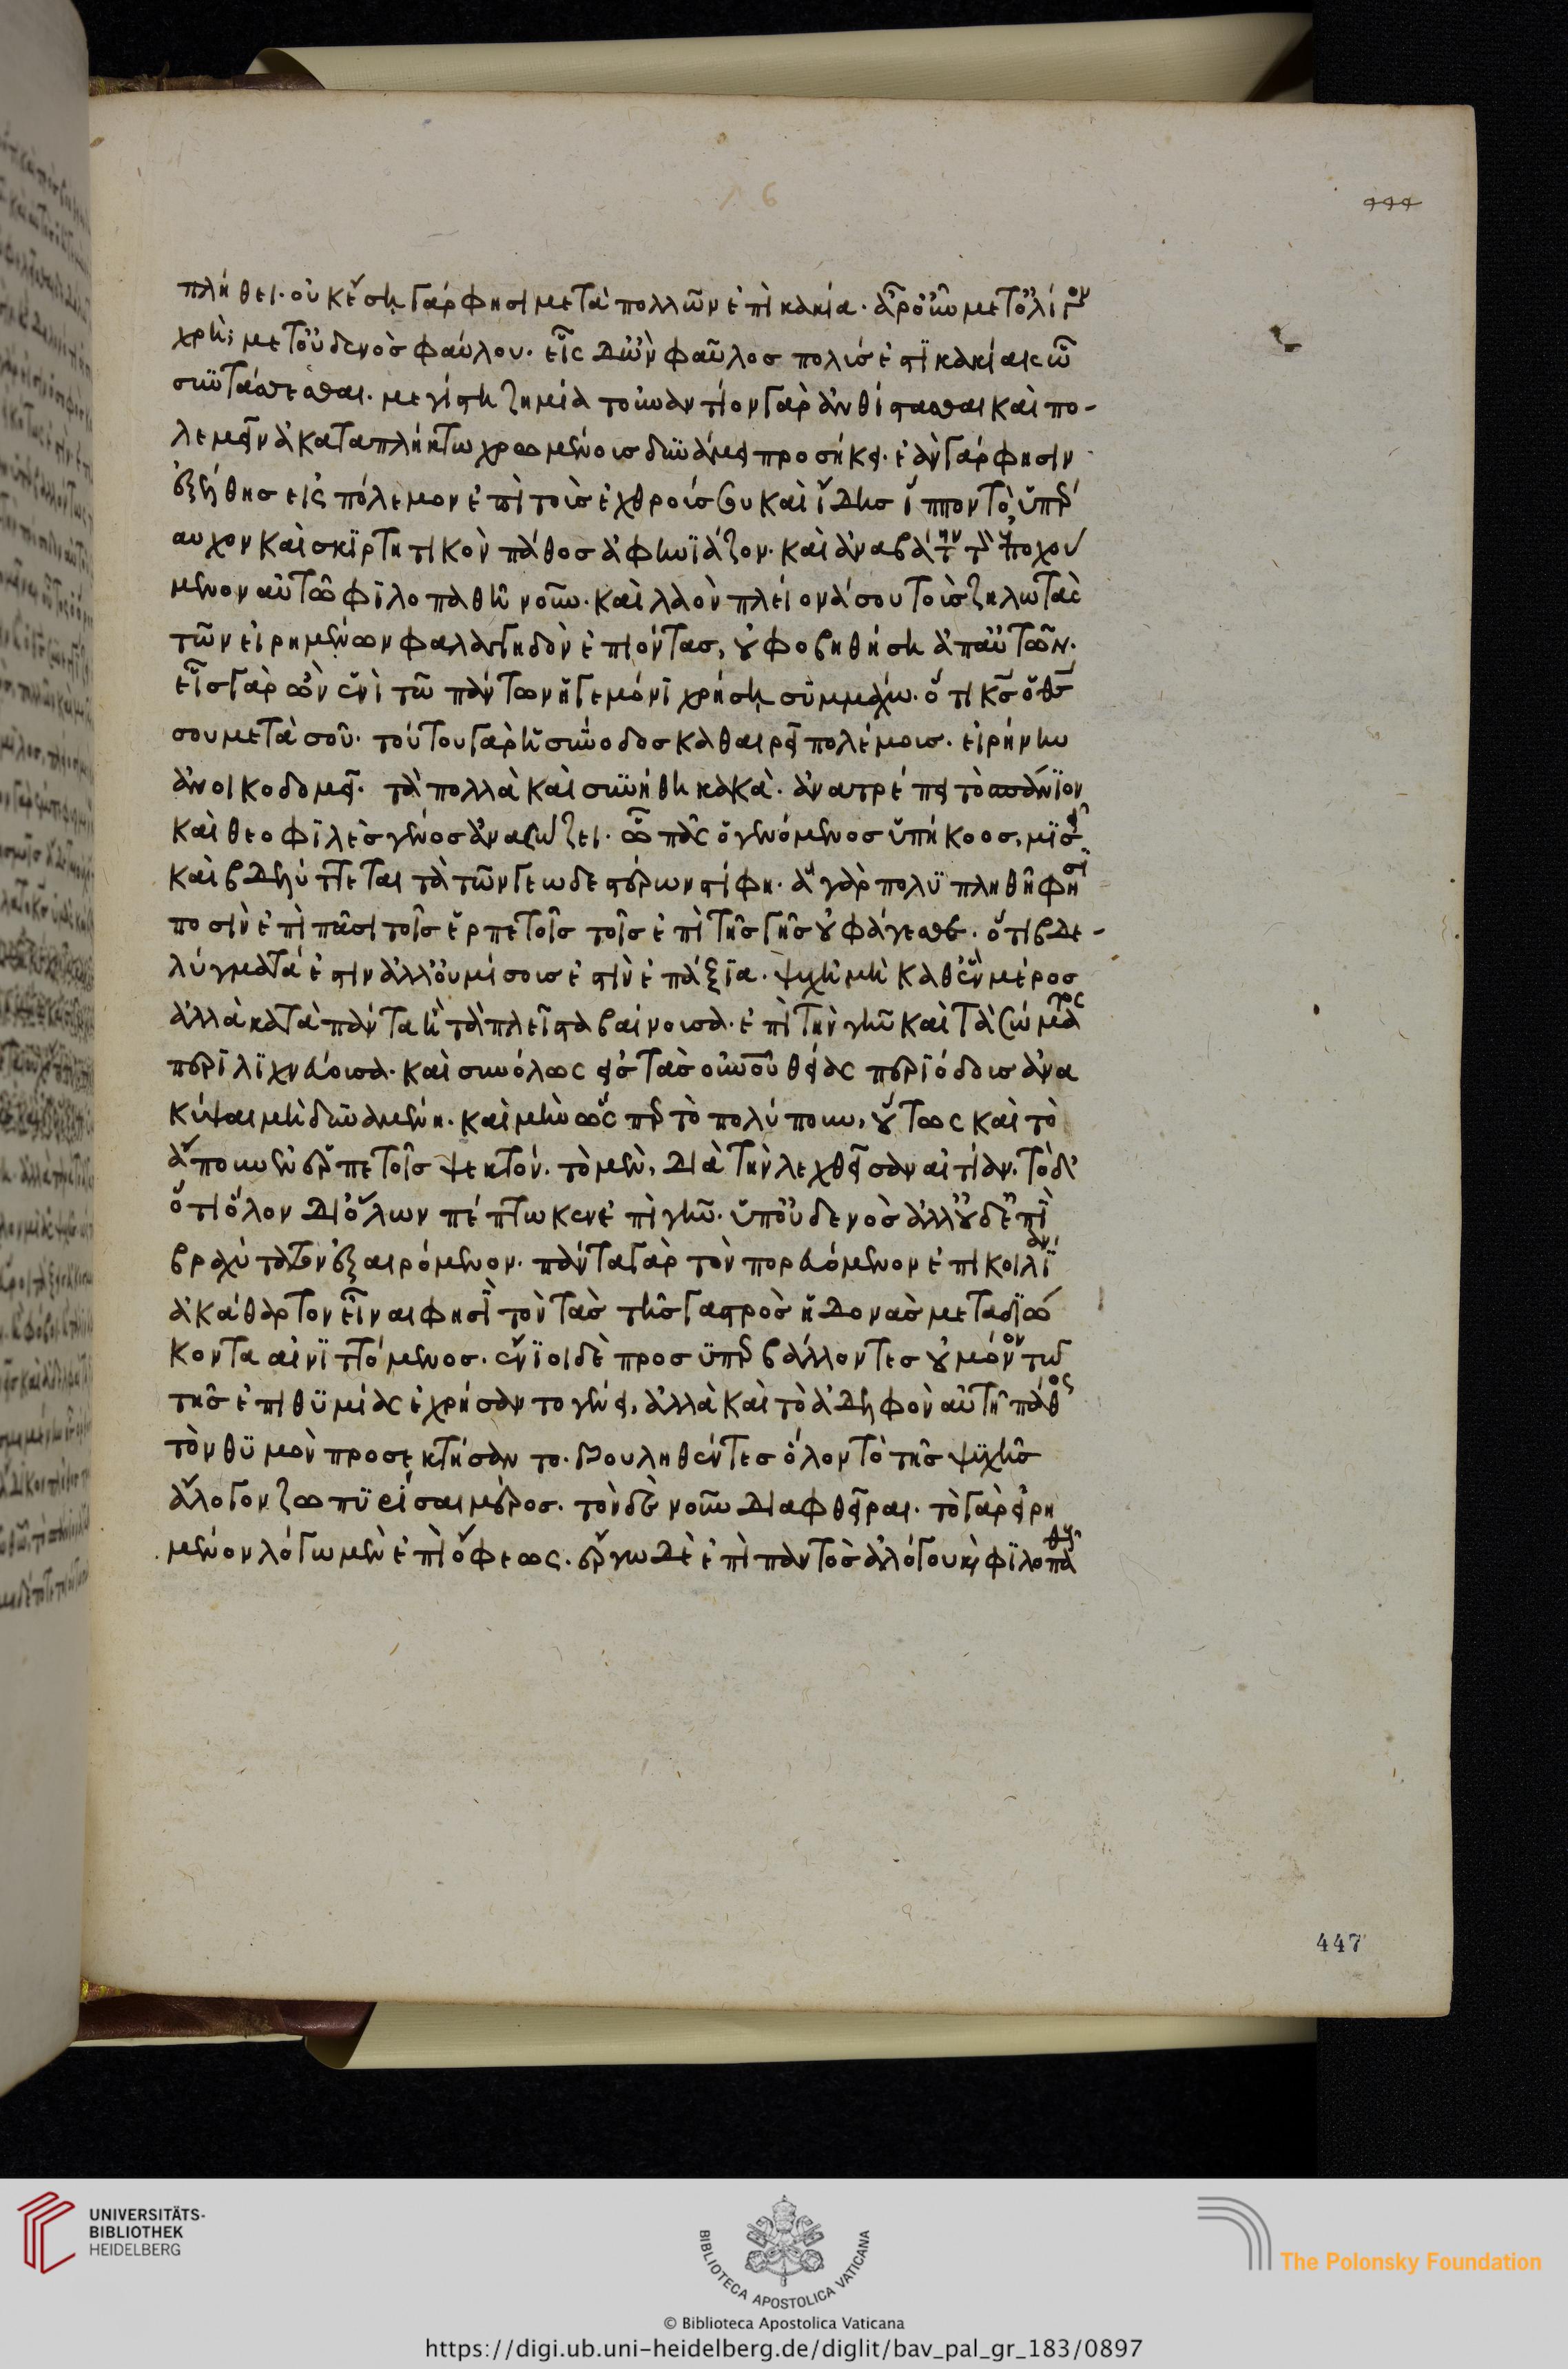 444
πλήθει· οὐκ ἔσῃ γάρ φησι μετὰ πολλῶν ἐπὶ κακία· ἆρ' οὖν μετ' ὀλίγον
χρή; μετ' οὐδενὸς φαύλου· εἷς δ' ὢν φαῦλος πολύς ἐστι κακίαις ᾧ
συντάττεσθαι· μεγίστη ζημία τοὐναντίον γὰρ ἀνθίστασθαι καὶ πο-
λεμεῖν ἀκαταπλήκτω χρωμένοις δυνάμει προσήκει· ἐὰν γάρ φησιν
ἐξέλθης εἰς πόλεμον ἐπὶ τοὺς ἐχθρούς σου καὶ ἴδης ἵππον τὸ ὑπέρ
αυχον καὶ σκιρτητικὸν πάθος ἀφηνιάζον· καὶ ἀναβάτην τὸν ἐποχού
μενον αὐτῶ φιλοπαθῆ νοῦν· καὶ λαὸν πλείονά σου τοὺς ζηλωτὰς
τῶν εἰρημένων φαλαγγηδὸν ἐπιόντας, οὐ φοβηθήσῃ ἀπ' αὐτῶν·
εἷς γὰρ ὢν ἑνὶ τῶ πάντων ἡγεμόνι χρήσῃ συμμάχω· ὅτι κς ὁ θς
σου μετὰ σοῦ· τούτου γὰρ ἡ σύνοδος καθαιρεῖ πολέμους· εἰρήνην
ἀνοικοδομεῖ· τὰ πολλὰ καὶ συνήθη κακὰ· ἀνατρέπει τὸ σπάνιον
καὶ θεοφιλὲς γένος ἀνασώζει· ᾧ πᾶς ὁ γενόμενος ὑπήκοος, μισεῖ
καὶ βδελύττεται τὰ τῶν γεωδεστέρων στίφη· ἃ γὰρ πολυπληθῆ φησι
ποσὶν ἐπὶ πᾶσι τοῖς ἑρπετοῖς τοῖς ἐπὶ τῆς γῆς οὐ φάγεσθε· ὅτι βδε-
λύγματά ἐστιν ἀλλ' οὐ μίσους ἐστὶν ἐπάξια· ψυχὴ μὴ καθ' ἓν μέρος
ἀλλὰ κατὰ πάντα ἢ τὰ πλεῖστα βαίνουσα· ἐπὶ τὴν γῆν καὶ τὰ σώματος
περιλιχνεύουσα· καὶ συνόλως εἰς τὰς οὐνοῦ θείας περιόδους ἀνα
κύψαι μὴ δυναμένη· καὶ μὴν ὡς περ τὸ πολύπουν, οὕτως καὶ τὸ
ἄπουν ἐν ἑρπετοῖς ψεκτόν· τὸ μὲν, διὰ τὴν λεχθεῖσαν αἰτίαν· τὸ δ'
ὅτι ὅλον δι' ὅλων πέπτωκεν ἐπὶ γῆν· ὑπ' οὐδενὸς ἀλλ' οὐδ' ἐπὶ
βραχύτατον ἐξαιρόμενον· πάντα γὰρ τὸν πορευόμενον ἐπὶ κοιλίαν
ἀκάθαρτον εἶναι φησὶ τὸν τὰς τῆς γαστρὸς ἡδονὰς μεταδιώ
κοντα αἰνιττόμενος· ἔνιοι δὲ προσυπερβάλλοντες οὐ μόνον τῶ
τῆς ἐπιθυμίας ἐχρήσαντο γένει, ἀλλὰ καὶ τὸ ἀδελφὸν αὐτῆ πάθος
τὸν θυμὸν προσεκτήσαντο· βουληθέντες ὅλον τὸ τῆς ψυχῆς
ἄλογον ζωπυρῆσαι μέρος· τὸν δὲ νοῦν διαφθεῖραι· τὸ γὰρ εἰρη
μένον λόγω μὲν ἐπὶ ὄφεως· ἔργω δὲ ἐπὶ παντὸς ἀλόγου καὶ φιλοπαθοῦς
447
UNIVERSITÄTS-
BIBLIOTHEK
HEIDELBERG
BIBLIOTECA APOSTOLICA VATICANA
The Polonsky Foundation
© Biblioteca Apostolica Vaticana
https://digi.ub.uni-heidelberg.de/diglit/bav_pal_gr_183/0897